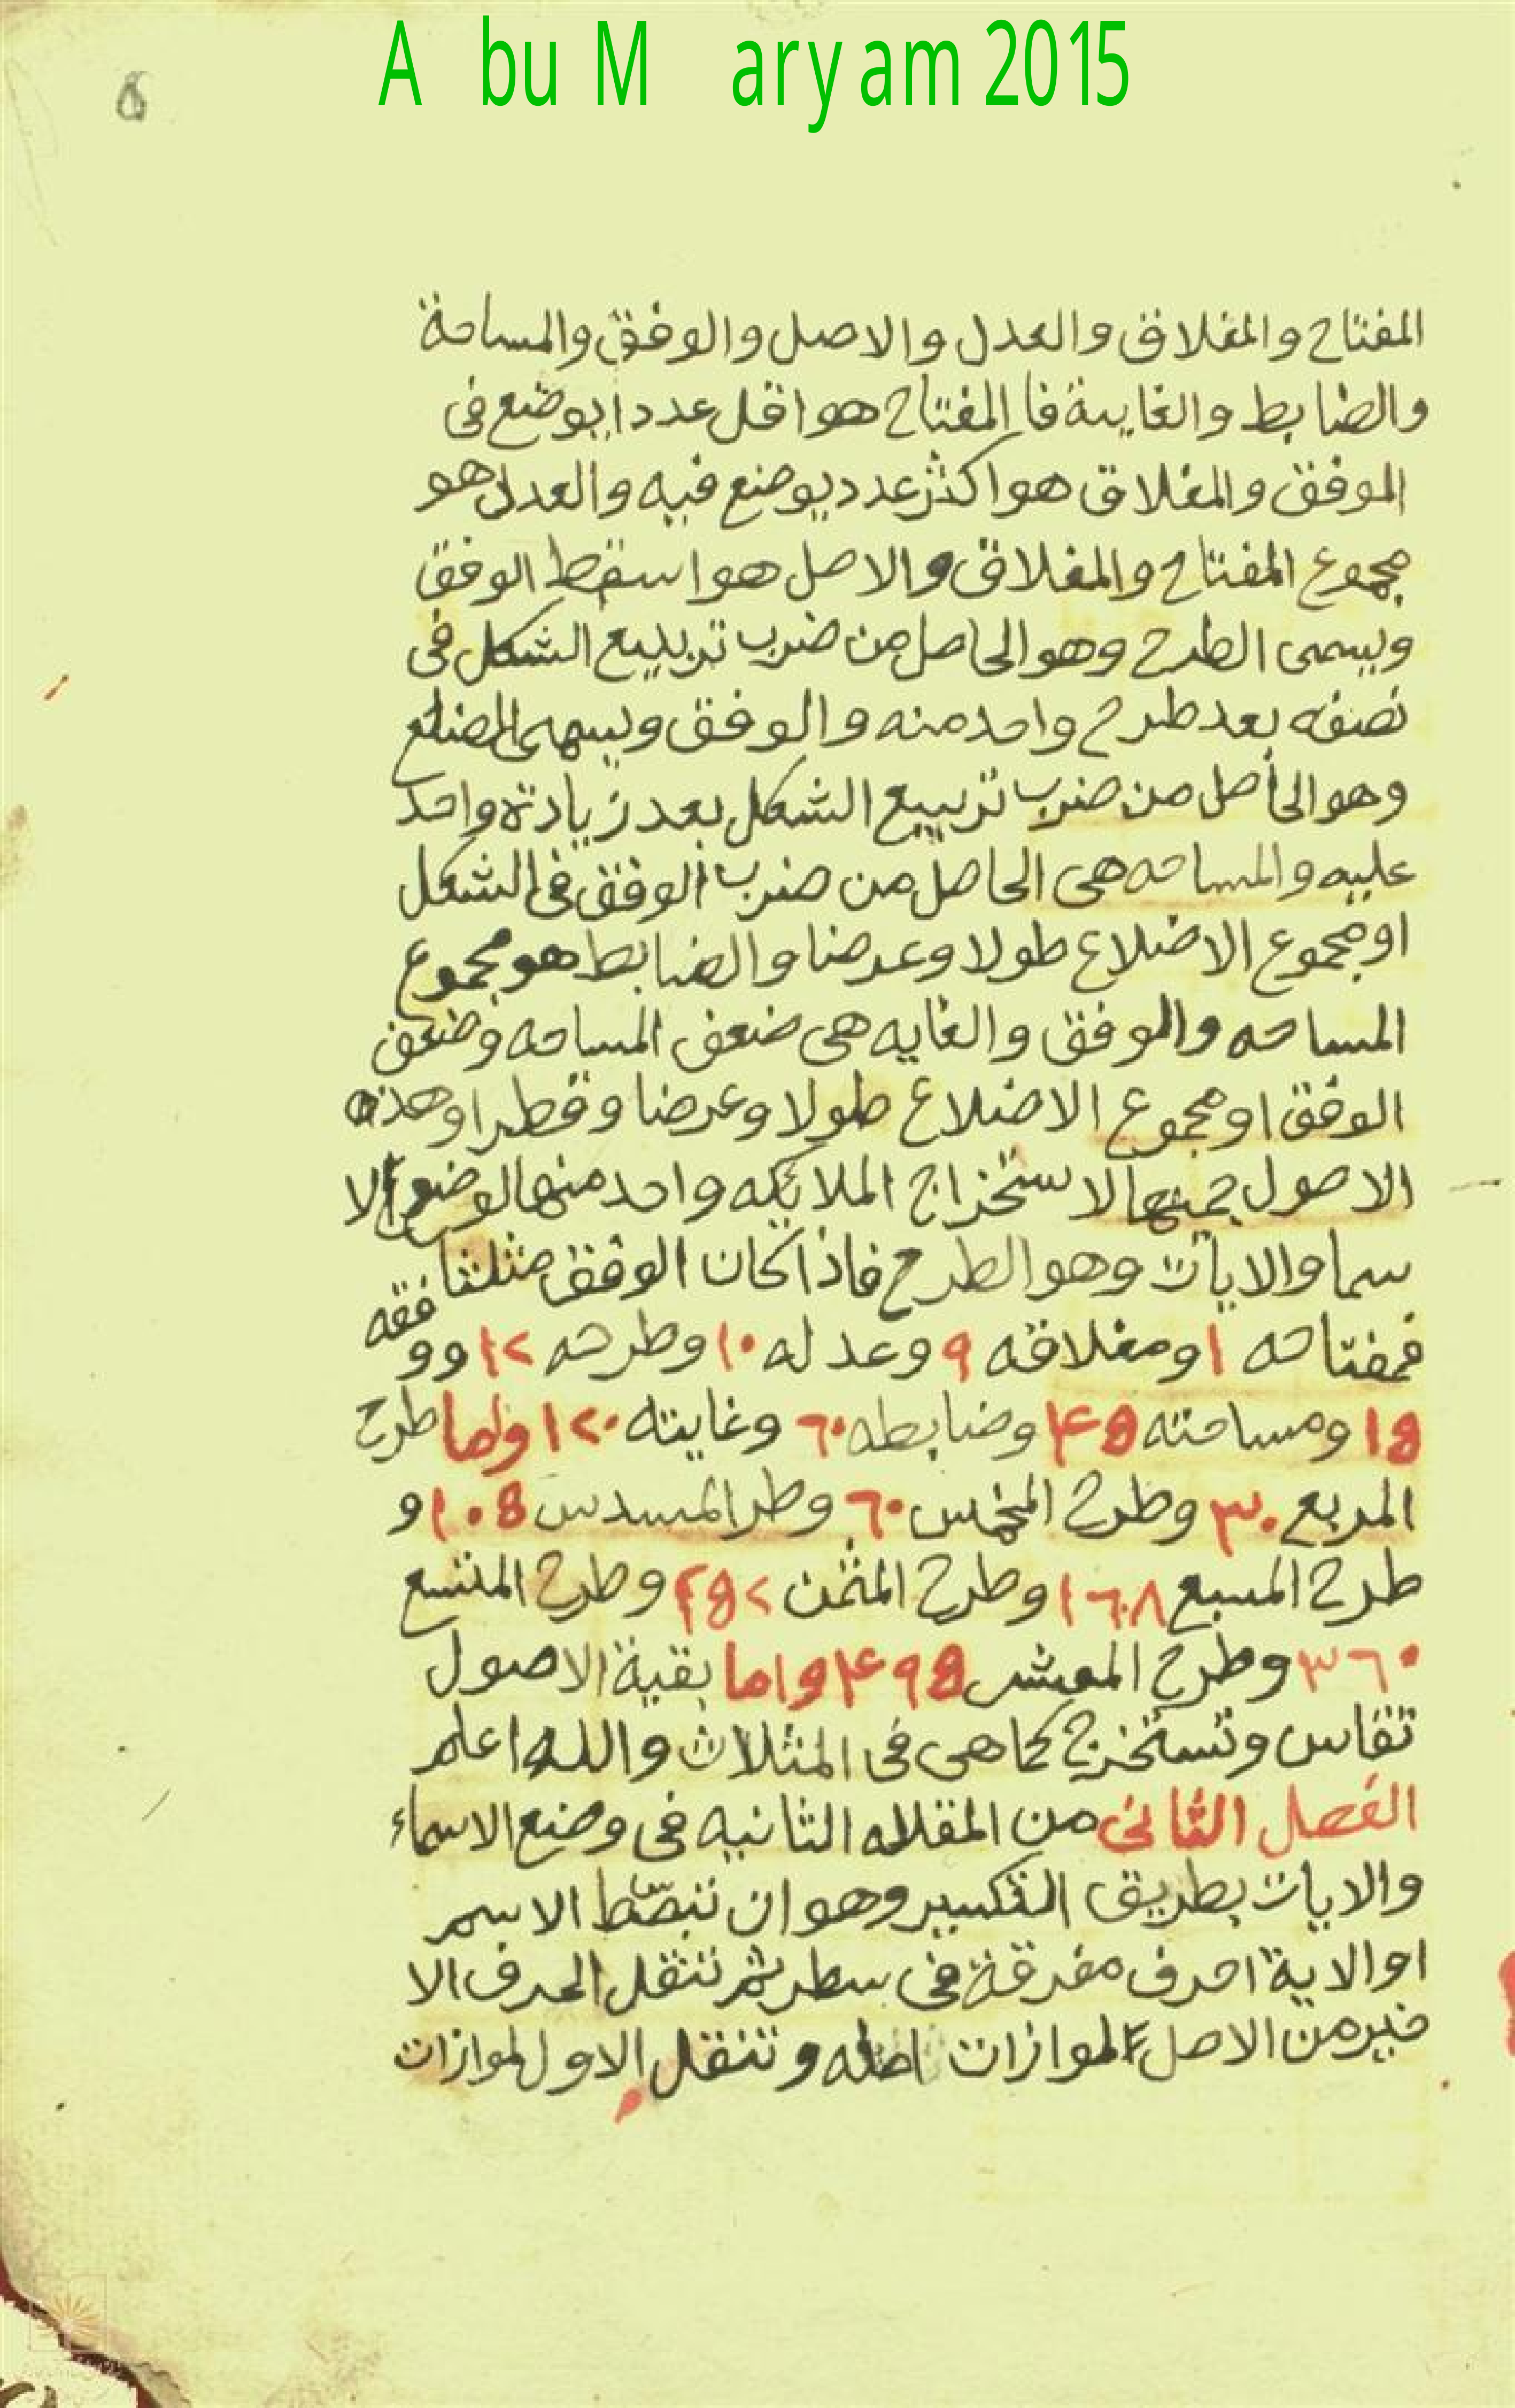 A bu M aryam 2015
٥
المفتاح والمغلاق والعدل والاصل والوفق والمساحة
والضابط والغاية فا المفتاح هو اقل عددا يوضع فى
الموفق والمغلاق هو اكثر عدد يوضع فيه والعدل هو
مجموع المفتاح والمغلاق والاصل هو اسقط الوفق
ويسمى الطرح وهو الحاصل من ضرب تربيع الشكل فى
نصفه بعد طرح واحد منه والوفق ويسمى الضلع
وهو الحاصل من ضرب تربيع الشكل بعد زيادة واحد
عليه والمساحه هى الحاصل من ضرب الوفق فى الشكل
او مجموع الاضلاع طولا وعرضا والضابط هو مجموع
المساحه والوفق والغايه هى ضعف المساحه وضعف
الوفق او مجموع الاضلاع طولا وعرضا وقطرا وهذه
الاصول جميعها لاستخراج الملايكه واحد منها لوضع الا
سما والايات وهو الطرح فاذا كان الوفق مثلثا
فمفتاحه ١ ومغلاقه ٩ وعدله ١٠ وطرحه ١٢ ووفقه
١٥ ومساحته ٤٥ وضابطه ٦٠ وغايته ١٢٠ واما طرح
المربع ٣٠ وطرح المخمس ٦٠ وطر المسدس ١٠٥ و
طرح المسبع ١٦٨ وطرح المثمن ٢٥٢ وطرح المتسع
٣٦٠ وطرح المعشر ٤٩٥ واما بقية الاصول
تقاس وتستخرج كما هى فى المثلاث والله اعلم
الفصل الثانى من المقلاه الثانيه فى وضع الاسماء
والايات بطريق التكسير وهو ان تبصّط الاسم
او الاية احرف مفرقة فى سطر ثم تنقل الحرف الا
خير من الاصل لموازات اصله وتنقل الاول لموازات